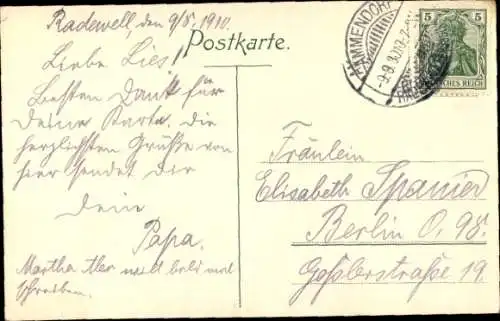 Radewell, den 9/8. 1910.
Postkarte.
Liebe Lies!
Besten Dank für
Deine Karte. Die
herzlichsten Grüße von
hier sendet dir
dein
Papa.
Martha
schreiben.
AMMENDORF
-9.8.10
5 5
DEUTSCHES REICH
Fräulein
Elisabeth Spanier
Berlin O. 98.
Goßlerstraße 19.